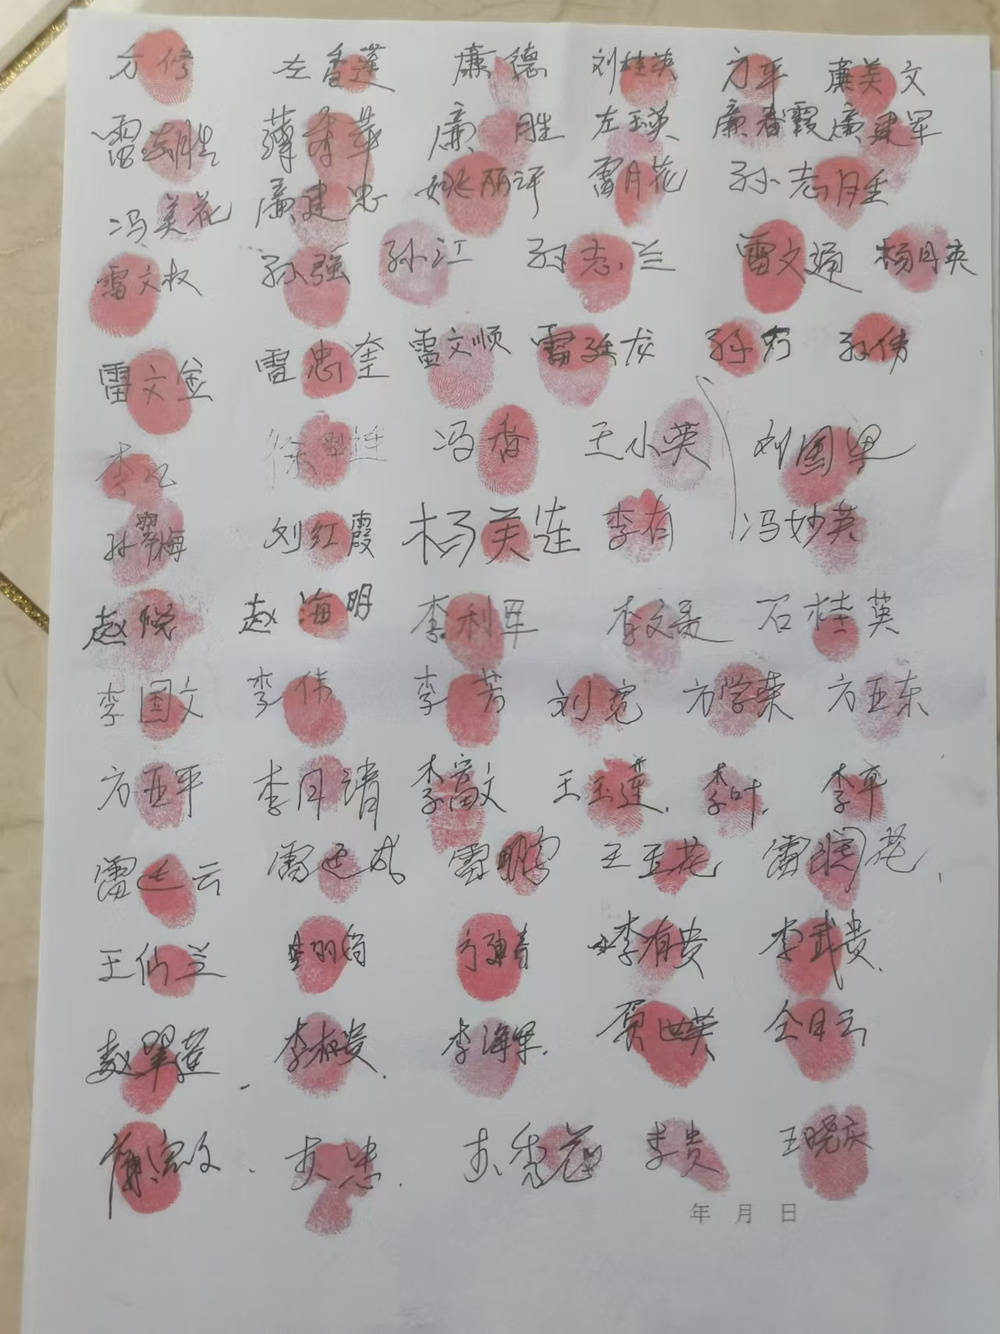 方修 左香莲 廉德 刘桂英 方平 廉美文
雷 胜 廉胜 左玉英 廉春霞 廉建军
冯美花 廉建忠 姚丽评 雷月花 孙志胜
雷文权 孙强 孙江 孙志兰 雷文通 杨月英
雷文金 雷忠奎 雷文顺 雷 龙 孙 孙伟
李 徐 连 冯香 王小英 刘国
孙翠梅 刘红霞 杨美连 李有 冯妙英
赵悦 赵海明 李利军 李文 石桂英
李国文 李伟 李芳 刘宽 方学荣 方亚东
方亚平 李月清 李富文 王玉莲 李叶 李平
雷 云 雷 雷鹏 王玉花 雷 花
王仙兰 李有贵 李武贵
赵翠莲 李 贵 李海军 贾世英 月云
廉 文 忠 秀花 李贵 王晓庆
年 月 日